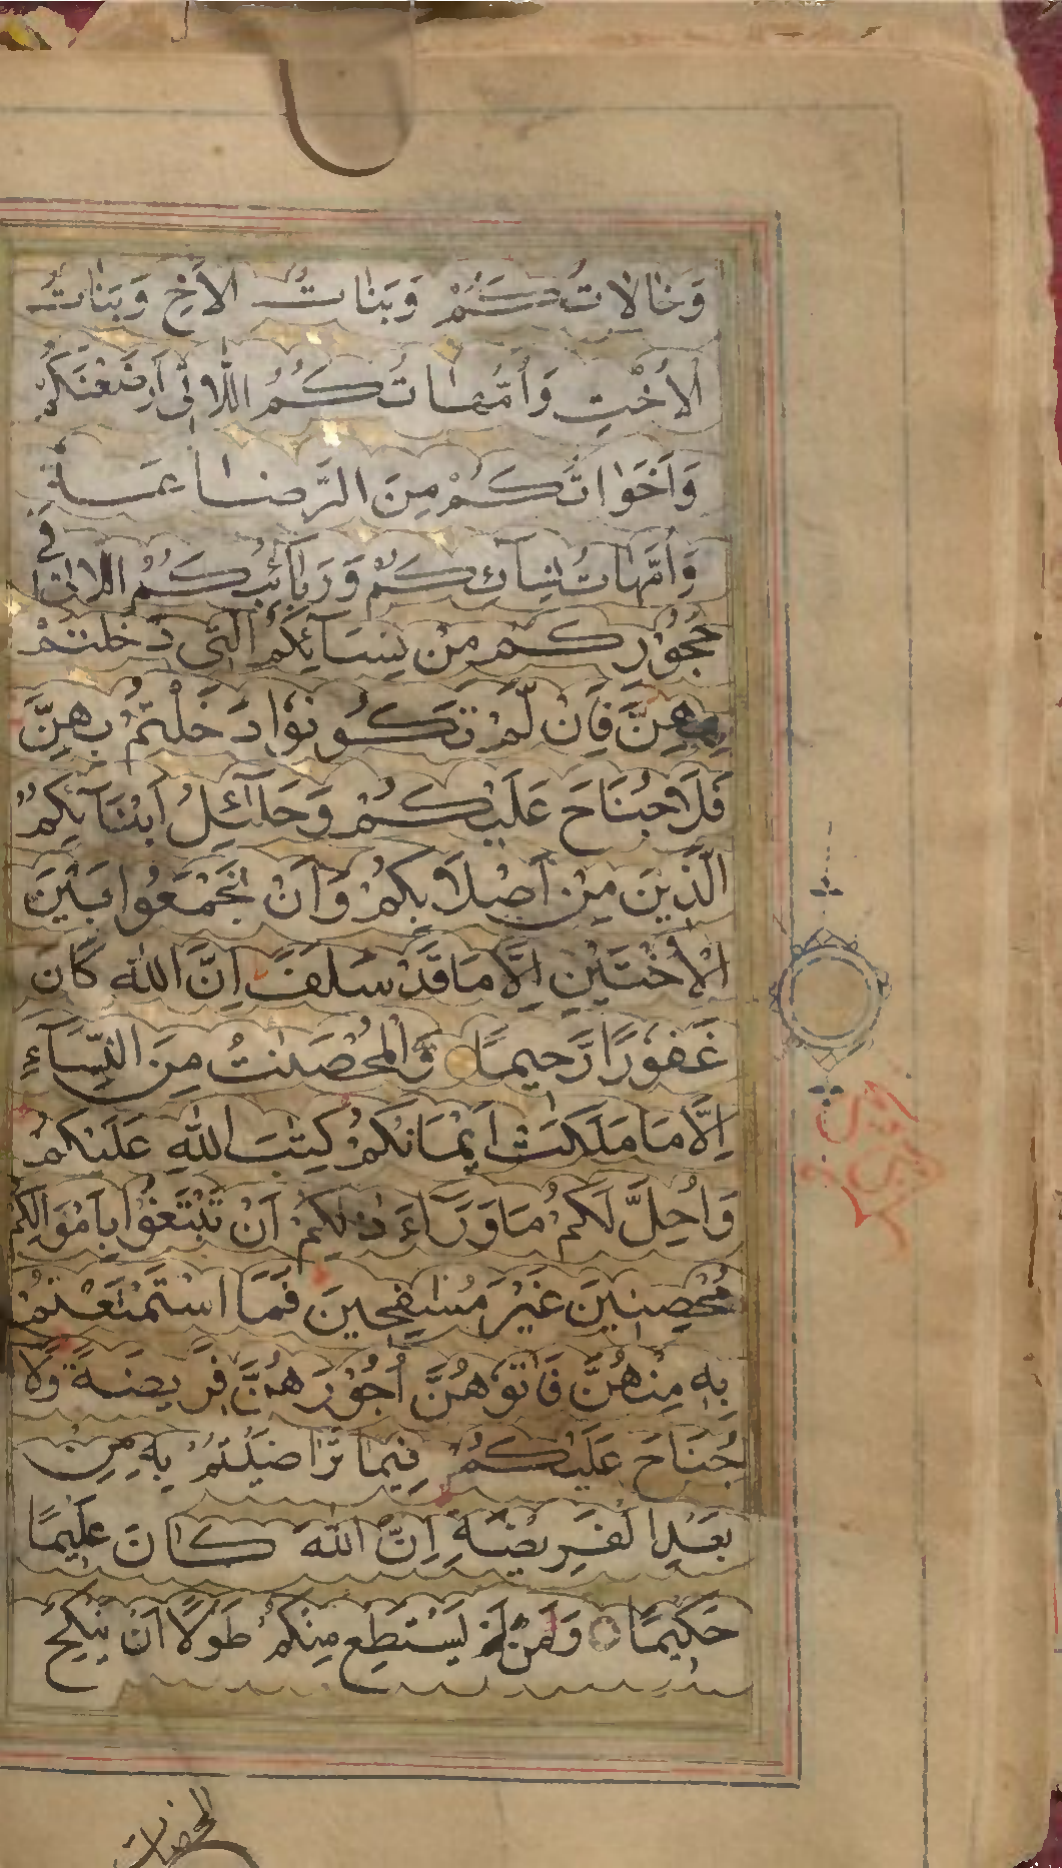 وَخَالَاتُكُمْ وَبَنَاتُ الاَخِ وَبَنَاتُ
الاُخْتِ وَاُمَّهَاتُكُمُ اللَّاتِى اَرْضَعْنَكُمْ
وَاَخَوَاتُكُمْ مِنَ الرَّضَاعَةِ
وَاُمَّهَاتُ نِسَآئِكُمْ وَرَبَآئِبُكُمُ اللَّاتِى فِى
حُجُوْرِكُمْ مِنْ نِسَآئِكُمُ الّٰتِى دَخَلْتُمْ
بِهِنَّ فَاِنْ لَّمْ تَكُوْنُوْا دَخَلْتُمْ بِهِنَّ
فَلَا جُنَاحَ عَلَيْكُمْ وَحَلَآئِلُ اَبْنَآئِكُمُ
الَّذِيْنَ مِنْ اَصْلَابِكُمْ وَاَنْ تَجْمَعُوْا بَيْنَ
الْاُخْتَيْنِ اِلَّا مَا قَدْ سَلَفَ اِنَّ اللّٰهَ كَانَ
غَفُوْرًا رَّحِيمًا وَالْمُحْصَنٰتُ مِنَ النِّسَآءِ
اِلَّا مَا مَلَكَتْ اَيْمَانُكُمْ كِتٰبَ اللّٰهِ عَلَيْكُمْ
وَاُحِلَّ لَكُمْ مَا وَرَآءَ ذٰلِكُمْ اَنْ تَبْتَغُوْا بِاَمْوَالِكُمْ
مُحْصِنِيْنَ غَيْرَ مُسٰفِحِيْنَ فَمَا اسْتَمْتَعْتُمْ
بِهٖ مِنْهُنَّ فَاٰتُوْهُنَّ اُجُوْرَهُنَّ فَرِيضَةً وَلَا
جُنَاحَ عَلَيْكُمْ فِيْمَا تَرَاضَيْتُمْ بِهٖ مِنْ
بَعْدِ الْفَرِيْضَةِ اِنَّ اللّٰهَ كَانَ عَلِيْمًا
حَكِيْمًا وَمَنْ لَمْ يَسْتَطِعْ مِنْكُمْ طَوْلًا اَنْ يَنْكِحَ
المحصنات